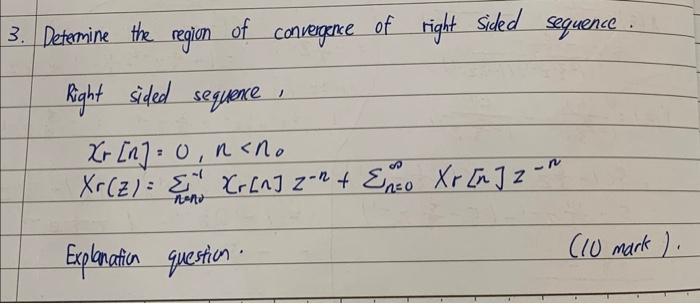 3. Determine the region of convergence of right sided sequence.
Right sided sequence,
Xr[n] = 0, n < n₀
Xr(z) = Σ_{n=n₀}^{-1} Xr[n] z^{-n} + Σ_{n=0}^{∞} Xr[n] z^{-n}
Explanation question. (10 mark).